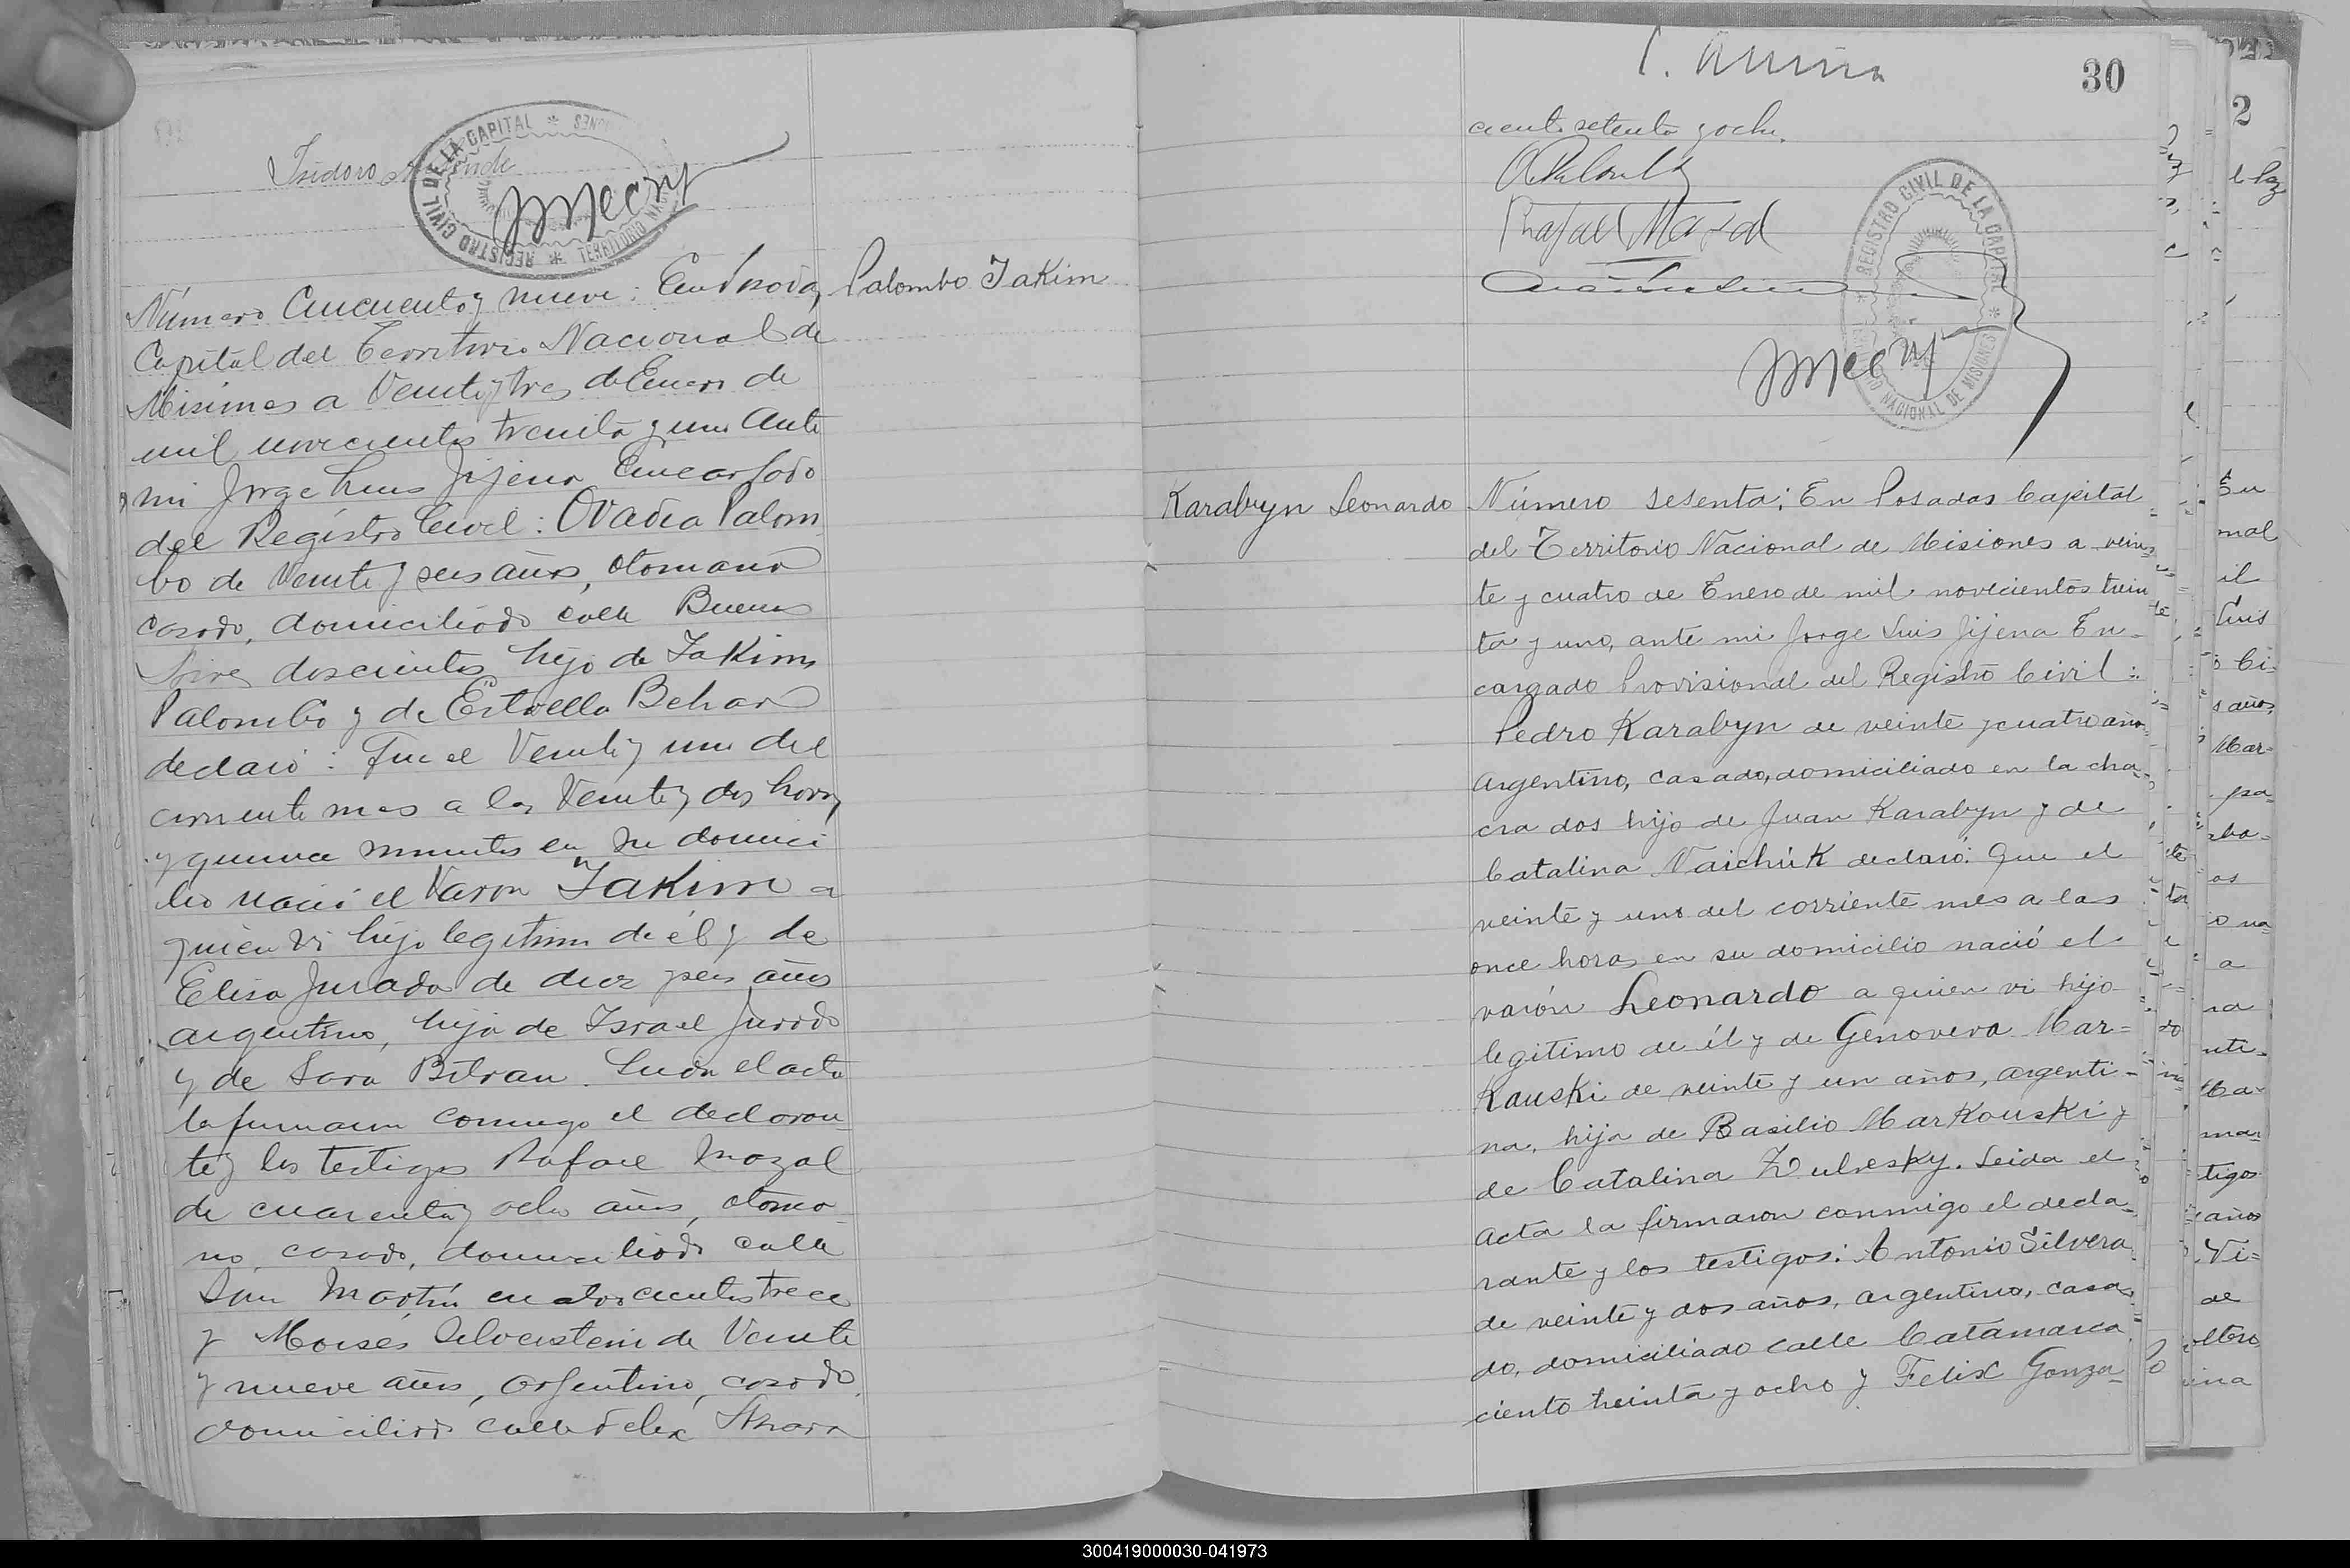 Isidoro
REGISTRO CIVIL DE LA CAPITAL
Palombo Jakim
Número Cincuenta y nueve: En Posadas,
Capital del Territorio Nacional de
Misiones a Veinte y tres de Enero de
mil novecientos treinta y uno Ante
mi Jorge Luis Jijena Encargado
del Registro Civil: Ovadia Palom
bo de Veinte y seis años, otomano
casado, domiciliado calle Buenos
Aires doscientos hijo de Jakim
Palombo y de Estrella Behar
declaró: Que el Veinte y uno del
corriente mes a las Veinte y dos horas
y quince minutos en su domici
lio nació el Varon Jakim a
quien vi hijo legitimo de él y de
Elisa Jurado de diez y seis años
argentina, hija de Israel Jurado
y de Sara Bitran. Leida el acta
la firmaron conmigo el declaran
te y los testigos Rafael Mazal
de cuarenta y ocho años, otoma
no, casado, domiciliado calle
San Martín cuatrocientos trece
y Moisés Silverstein de Veinte
y nueve años, argentino, casado,
domiciliado calle Felix Azara
30
ciento setenta y ocho.
Rafael Mazal
REGISTRO CIVIL DE LA CAPITAL
NACIONAL DE MISIONES
Karabyn Leonardo
Número sesenta: En Posadas Capital
del Territorio Nacional de Misiones a vein
te y cuatro de Enero de mil novecientos trein
ta y uno, ante mi Jorge Luis Jijena En-
cargado Provisional del Registro Civil:
Pedro Karabyn de veinte y cuatro años
argentino, casado, domiciliado en la cha-
cra dos hijo de Juan Karabyn y de
Catalina Naichúk declaró: Que el
veinte y uno del corriente mes a las
once horas en su domicilio nació el
varón Leonardo a quien vi hijo
legitimo de él y de Genoveva Mar=
Kauski de veinte y un años, argenti-
na, hija de Basilio MarKouski y
de Catalina Zulvesky. Leida el
acta la firmaron conmigo el decla-
rante y los testigos: Antonio Silvera
de veinte y dos años, argentino, casa-
do, domiciliado calle Catamarca
ciento treinta y ocho y Felix Gonza-
2
300419000030-041973